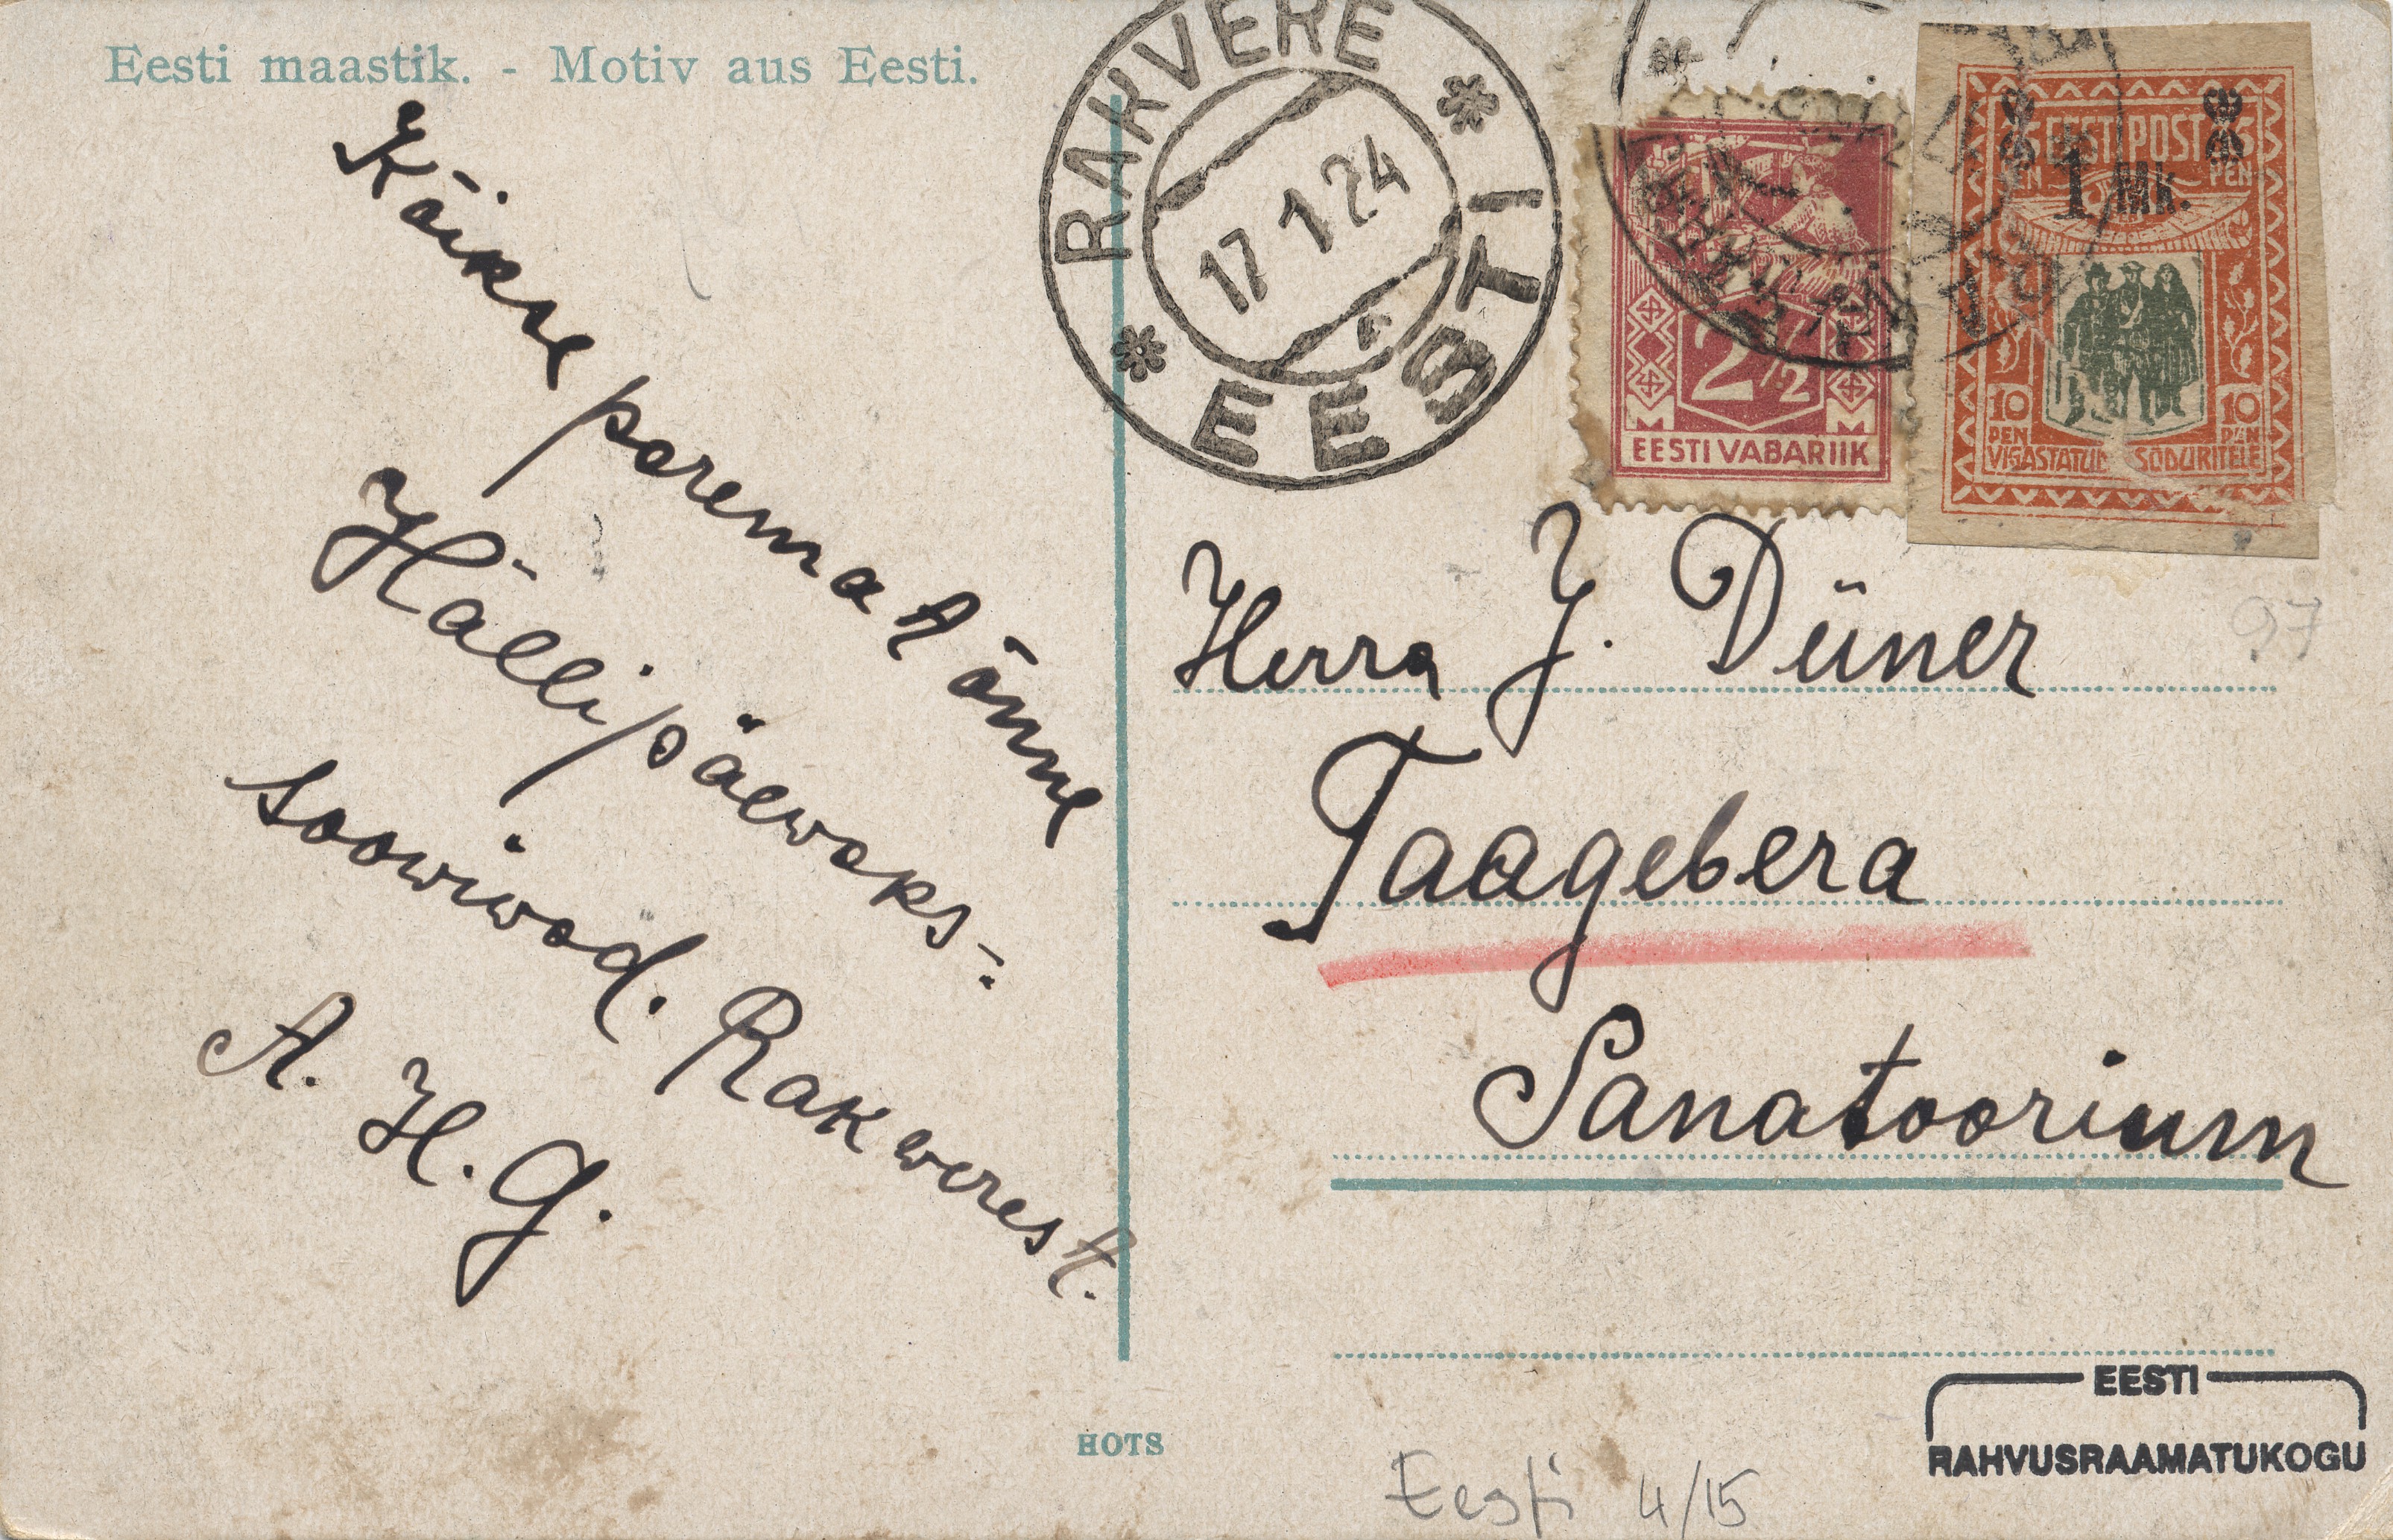 Eesti maastik. - Motiv aus Eesti.
Kõikse paremat õnne
Hällipäewaks-
soowiwad. Rakwerest.
A. H. G.
RAKVERE
17 1 24
EESTI
2 1/2
M M
EESTI VABARIIK
EESTI POST
1 Mk.
PEN PEN
10 10
PEN PEN
VIGASTATUD SÕDURITELE
Herra J. Düner
Taagebera
Sanatoorium
97
HOTS
Eesti 4/15
EESTI
RAHVUSRAAMATUKOGU